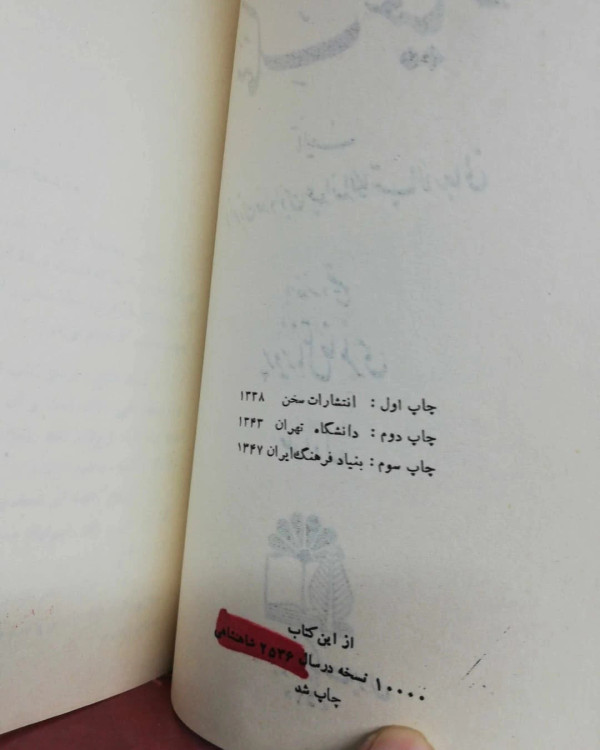 چاپ اول : انتشارات سخن ۱۳۳۸
چاپ دوم : دانشگاه تهران ۱۳۴۳
چاپ سوم : بنیاد فرهنگ ایران ۱۳۴۷
از این کتاب
۱۰۰۰۰ نسخه در سال ۲۵۳۶ شاهنشاهی
چاپ شد